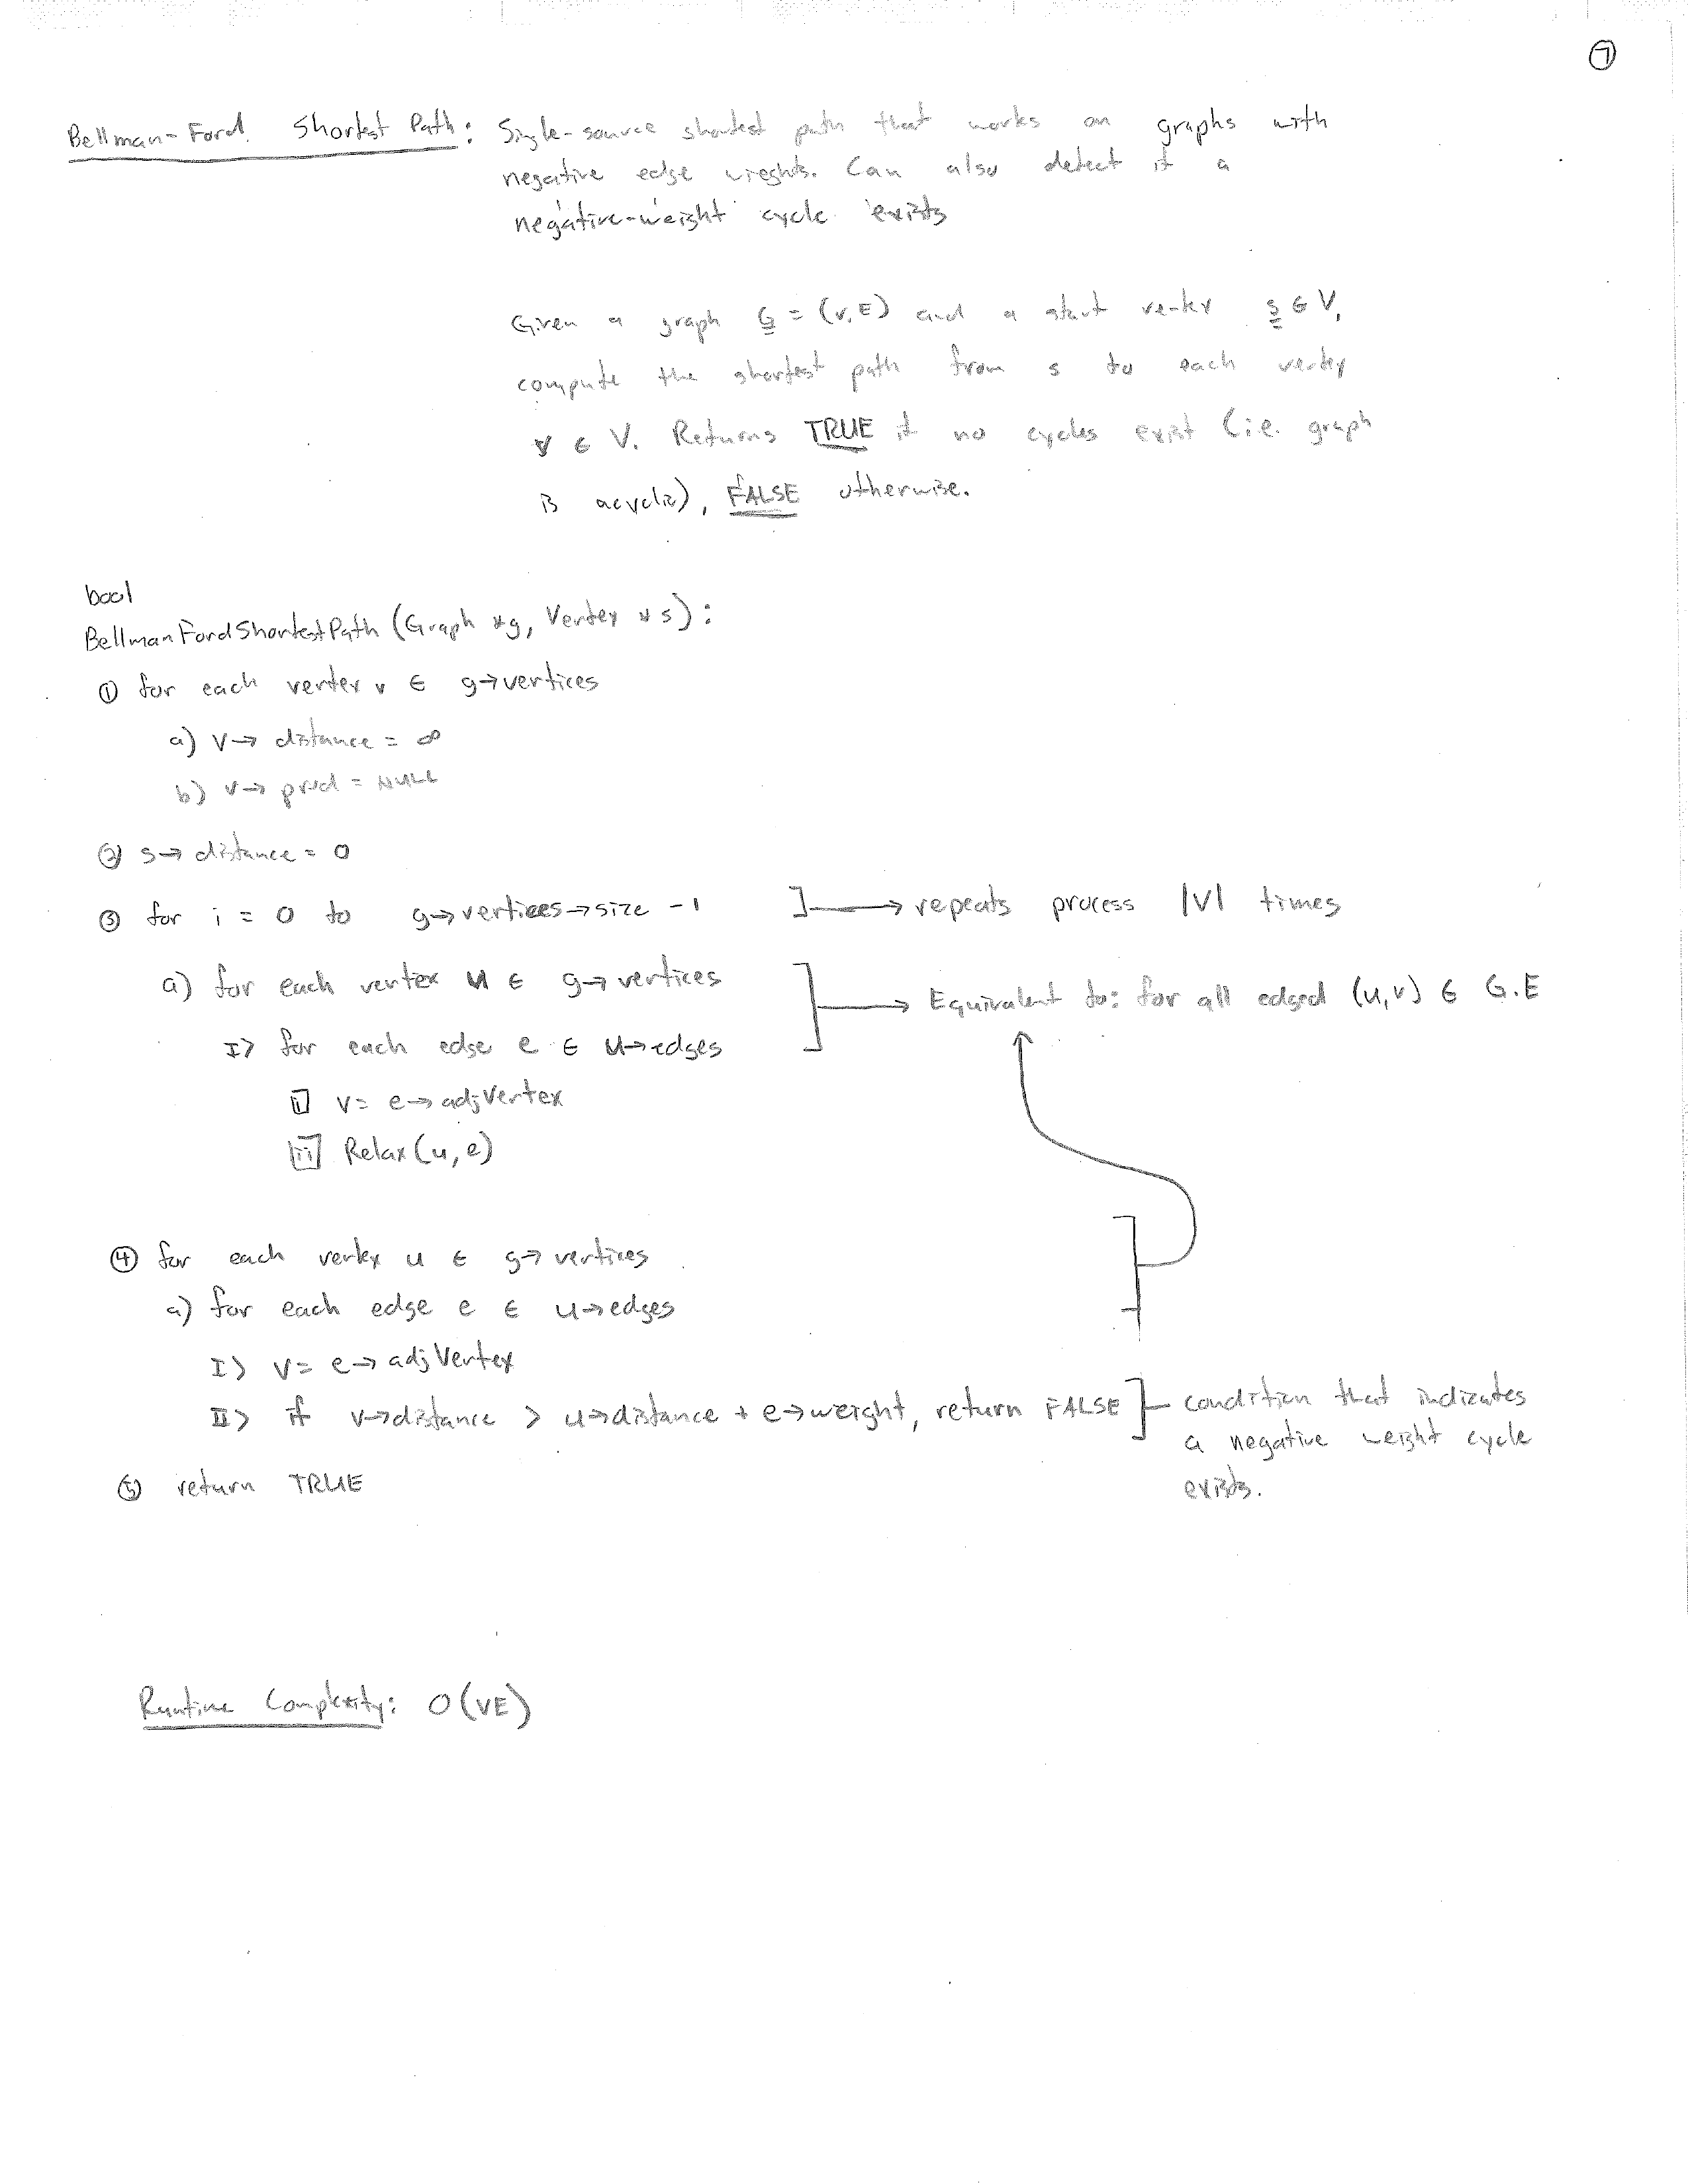 7
Bellman-Ford Shortest Path: Single-source shortest path that works on graphs with
negative edge wieghts. Can also detect if a
negative-weight cycle exists
Given a graph G = (V,E) and a start vertex s ∈ V,
compute the shortest path from s to each vertex
v ∈ V. Returns TRUE if no cycles exist (i.e. graph
is acyclic), FALSE otherwise.
bool
BellmanFordShortestPath (Graph *g, Vertex *s):
① for each vertex v ∈ g→vertices
a) v→distance = ∞
b) v→pred = NULL
② s→distance = 0
③ for i = 0 to g→vertices→size -1 ]→ repeats process |V| times
a) for each vertex u ∈ g→vertices
I> for each edge e ∈ u→edges
→ Equivalent to: for all edged (u,v) ∈ G.E
i v = e→adjVertex
ii Relax(u,e)
④ for each vertex u ∈ g→vertices
a) for each edge e ∈ u→edges
I> v = e→adjVertex
II> if v→distance > u→distance + e→weight, return FALSE ]- condition that indicates
a negative weight cycle
exists.
⑤ return TRUE
Runtime Complexity: O(VE)